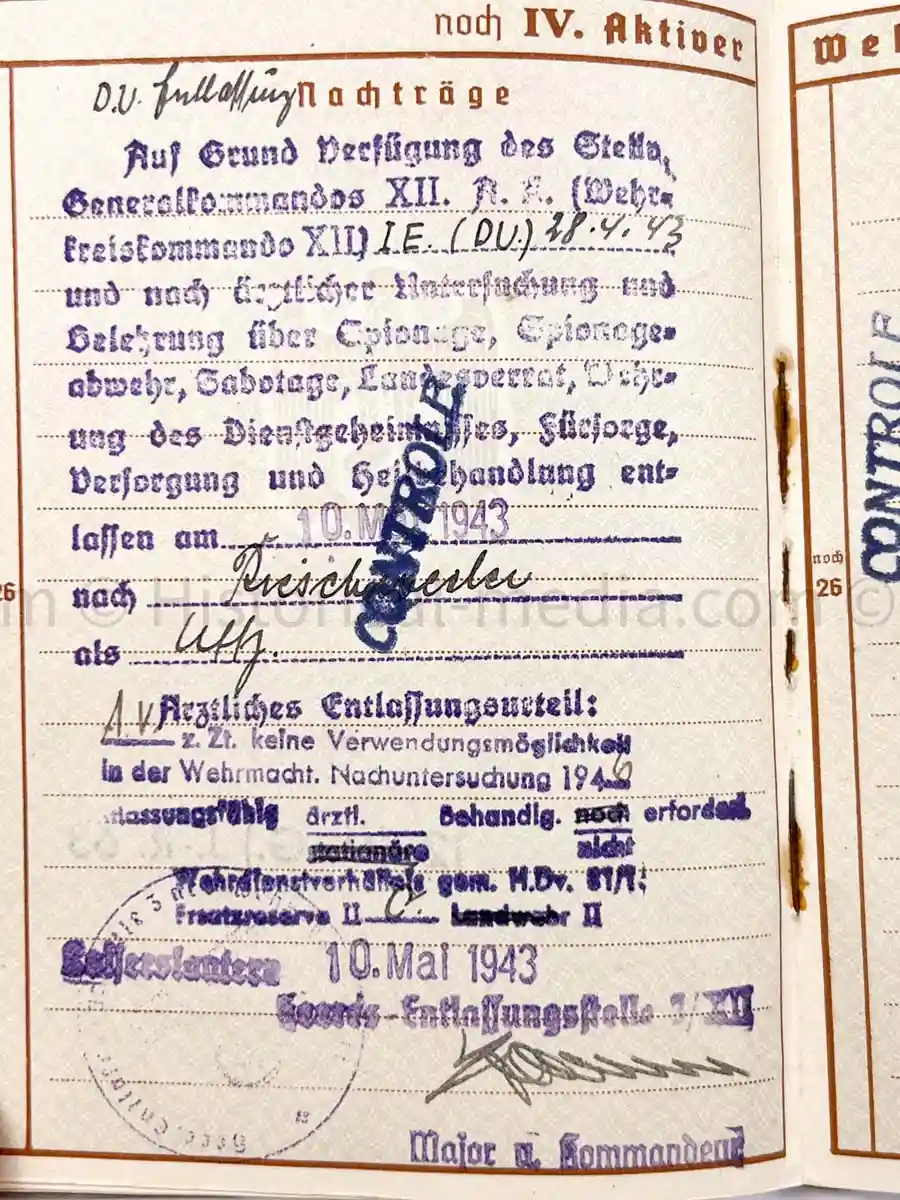 noch IV. Aktiver
We
D.U. Entlassung Nachträge
Auf Grund Verfügung des Stellv.
Generalkommandos XII. A. K. (Wehr-
kreiskommando XII) IE. (DU.) 28.4.43
und nach ärztlicher Untersuchung und
Belehrung über Spionage, Spionage-
abwehr, Sabotage, Landesverrat, Wahr-
ung des Dienstgeheimnisses, Fürsorge,
Versorgung und Heilbehandlung ent-
lassen am 10. Mai 1943
nach
als Uffz.
CONTROLE
CONTROLE
26
noch
26
Ärztliches Entlassungsurteil:
A.v. z. Zt. keine Verwendungsmöglichkeit
in der Wehrmacht. Nachuntersuchung 1946
entlassungsfähig ärztl. Behandlg. noch erforderl.
stationäre nicht
Wehrdienstverhältnis gem. H.Dv. 81/1:
Ersatzreserve II Landwehr II
Kaiserslautern 10. Mai 1943
Heeres-Entlassungsstelle 1/XII
Major u. Kommandeur
© Historical-media.com ©